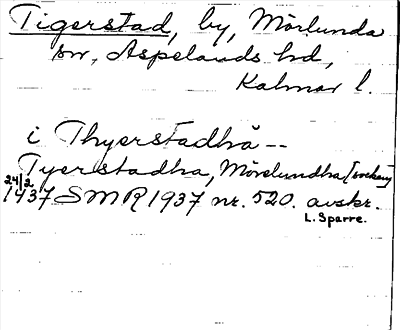 Tigerstad, by, Mörlunda
sn, Aspelands hd,
Kalmar l.
i Thyerstadhä--
Tyerstadha, Mörelundha [socken]
24/2
1437 SMR 1937 nr. 520. avskr.
L. Sparre.